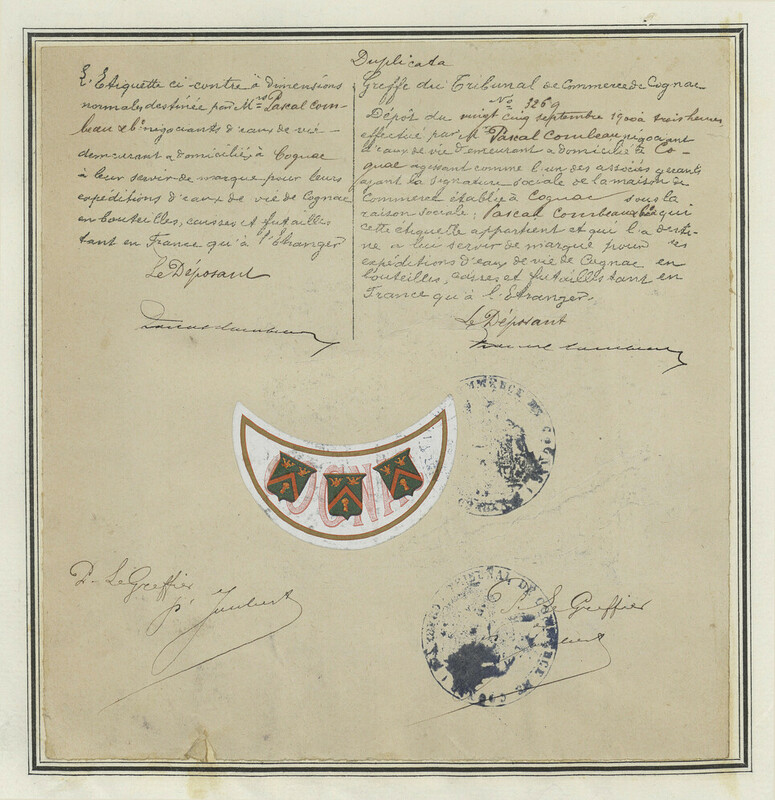 Duplicata
L'Etiquette ci-contre à dimensions
normales destinée par Mrs Pascal Com-
beau & Cie négociants d'eaux de vie
demeurant & domiciliés à Cognac
à leur servir de marque pour leurs
expéditions d'eaux de vie de Cognac
en bouteilles, caisses et futailles
tant en France qu'à l'Etranger
Le Déposant
Greffe du Tribunal de Commerce de Cognac
No 3269
Dépôt du vingt cinq septembre 1900 à trois heures
effectué par M. Pascal Combeau négociant
d'eaux de vie demeurant & domicilié à Co-
gnac agissant comme l'un des associés gérants
ayant la signature sociale de la maison de
Commerce établie à Cognac sous la
raison sociale: Pascal Combeau & Cie à qui
cette étiquette appartient et qui l'a desti-
née à lui servir de marque pour ses
expéditions d'eaux de vie de Cognac en
bouteilles, caisses et futailles tant en
France qu'à l'Etranger.
Le Déposant
COGNAC
COMMERCE DE COGNAC
P. Le Greffier
P. Le Greffier
TRIBUNAL DE COMMERCE DE COGNAC